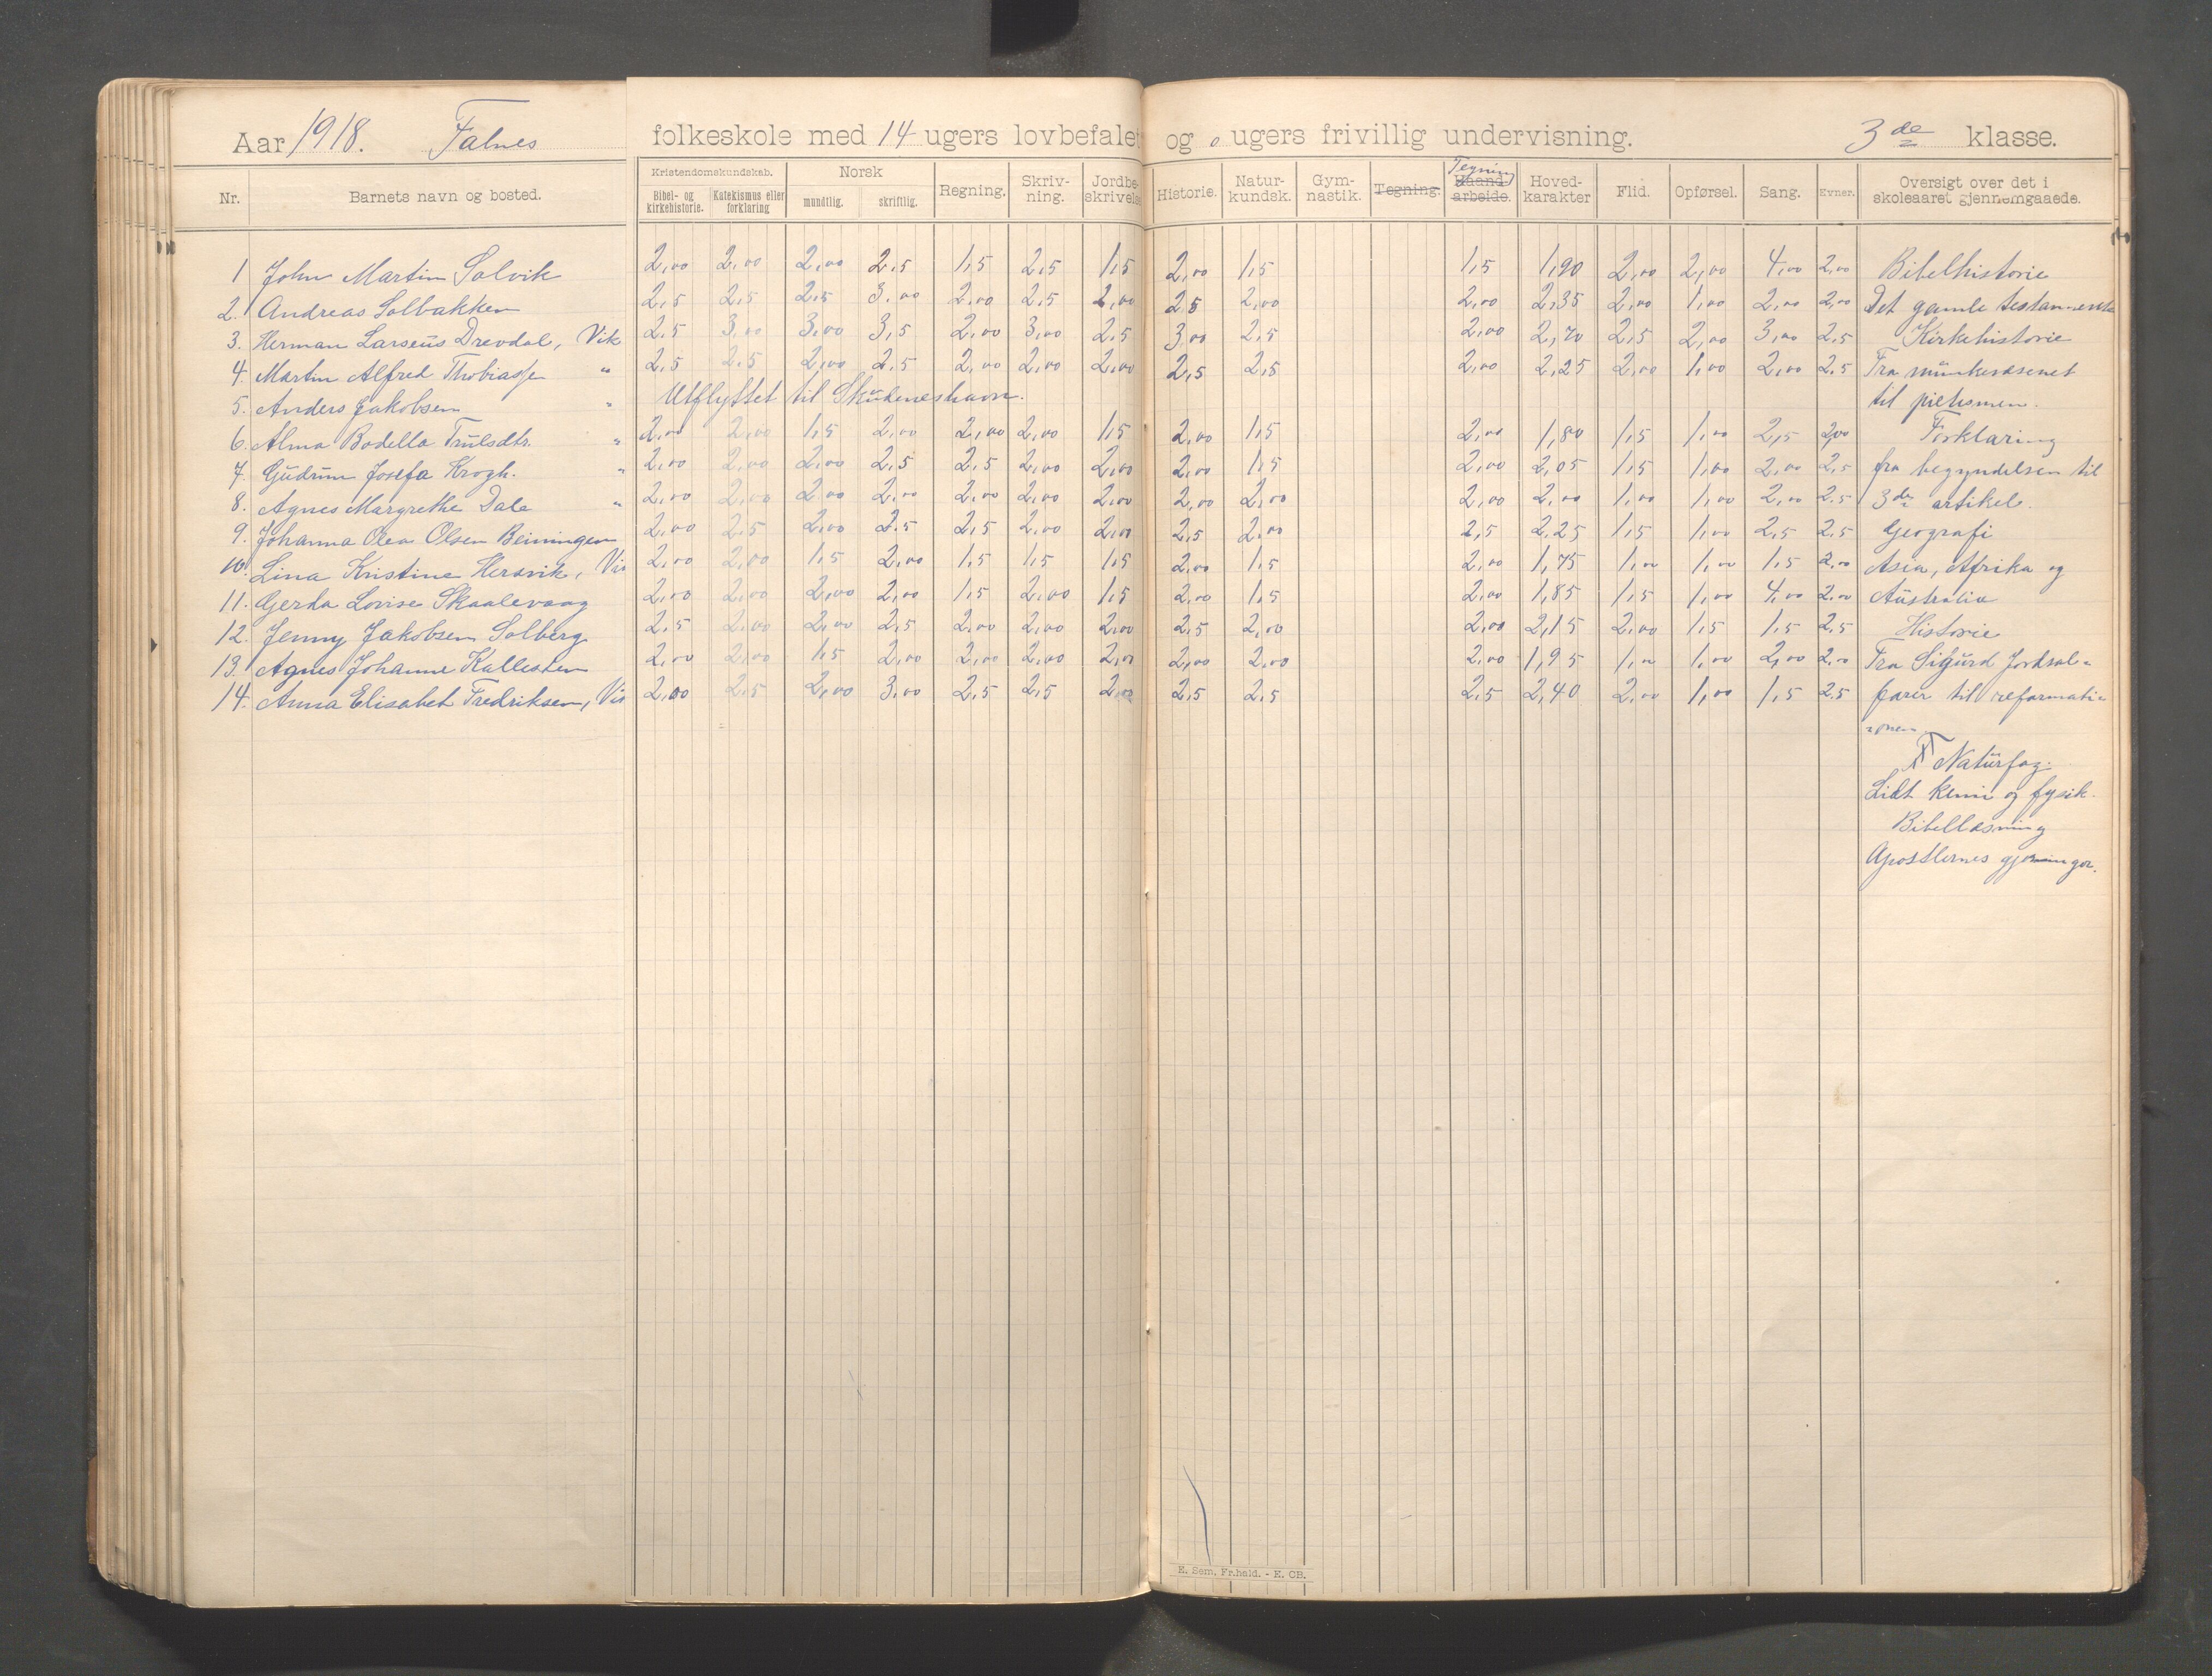 Aar 1918. Falnes folkeskole med 14 ugers lovbefalet og 0 ugers frivillig undervisning. 3de klasse.
Nr. Barnets navn og bosted. Kristendomskundskab. Bibel- og kirkehistorie. Katekismus eller forklaring Norsk mundtlig. skriftlig. Regning. Skriv-ning. Jordbe-skrivelse Historie. Natur-kundsk. Gym-nastik. Tegning. Haand-arbeide. Tegning Hoved-karakter Flid. Opførsel. Sang. Evner. Oversigt over det i skoleaaret gjennemgaaede.
1 John Martin Solvik 2,00 2,00 2,00 2,5 1,5 2,5 1,5 2,00 1,5 1,5 1,90 2,00 2,00 4,00 2,00 Bibelhistorie
2. Andreas Solbakken 2,5 2,5 2,5 3,00 2,00 2,5 2,00 2,5 2,00 2,00 2,35 2,00 1,00 2,00 2,00 Det gamle testamente
3. Herman Larseus Drevdal, Vik 2,5 3,00 3,00 3,5 2,00 3,00 2,5 3,00 2,5 2,00 2,70 2,5 2,00 3,00 2,5 Kirkehistorie
4. Martin Alfred Thobiasse " 2,5 2,5 2,00 2,5 2,00 2,00 2,00 2,5 2,5 2,00 2,25 2,00 1,00 2,00 2,5 Fra munkevæsenet
5. Anders Jakobsen " Utflyttet til Skudeneshavn. til pietismen.
6. Alma Bodella Trulsdtr. " 2,00 2,00 1,5 2,00 2,00 2,00 1,5 2,00 1,5 2,00 1,80 1,5 1,00 2,5 2,00 Forklaring
7. Gudrun Josefa Krogh. " 2,00 2,00 2,00 2,5 2,5 2,00 2,00 2,00 1,5 2,00 2,05 1,5 1,00 2,00 2,5 fra begyndelsen til
8. Agnes Margrethe Dale " 2,00 2,00 2,00 2,00 2,00 2,00 2,00 2,00 2,00 2,00 2,00 1,00 1,00 2,00 2,5 3de artikel.
9. Johanna Olea Olsen Beiningen 2,00 2,5 2,00 2,5 2,5 2,00 2,00 2,5 2,00 2,5 2,25 1,5 1,00 2,5 2,5 Geografi
10. Lina Kristine Hersvik, Vis 2,00 2,00 1,5 2,00 1,5 1,5 1,5 2,00 1,5 2,00 1,75 1,00 1,00 1,5 2,00 Asia, Afrika og
11. Gerda Lovise Skaalevaag 2,00 2,00 2,00 2,00 1,5 2,00 1,5 2,00 1,5 2,00 1,85 1,5 1,00 4,00 2,00 Australia
12. Jenny Jakobsen Solberg 2,5 2,00 2,00 2,5 2,00 2,00 2,00 2,5 2,00 2,00 2,15 2,00 1,5 1,5 2,5 Historie
13. Agnes Johanne Kallesten 2,00 2,00 1,5 2,00 2,00 2,00 2,00 2,00 2,00 2,00 1,95 1,00 1,00 2,00 2,00 Fra Sigurd Jorsal-
14. Anna Elisabet Fredriksen, Vis 2,00 2,5 2,00 3,00 2,5 2,5 2,00 2,5 2,5 2,5 2,40 2,00 1,00 1,5 2,5 farer til reformati-
-onen.
Naturfag.
Lidt kemi og fysik.
Bibellæsning
Apostlernes gjerninger.
E. Sem, Fr.hald. - E. CB.